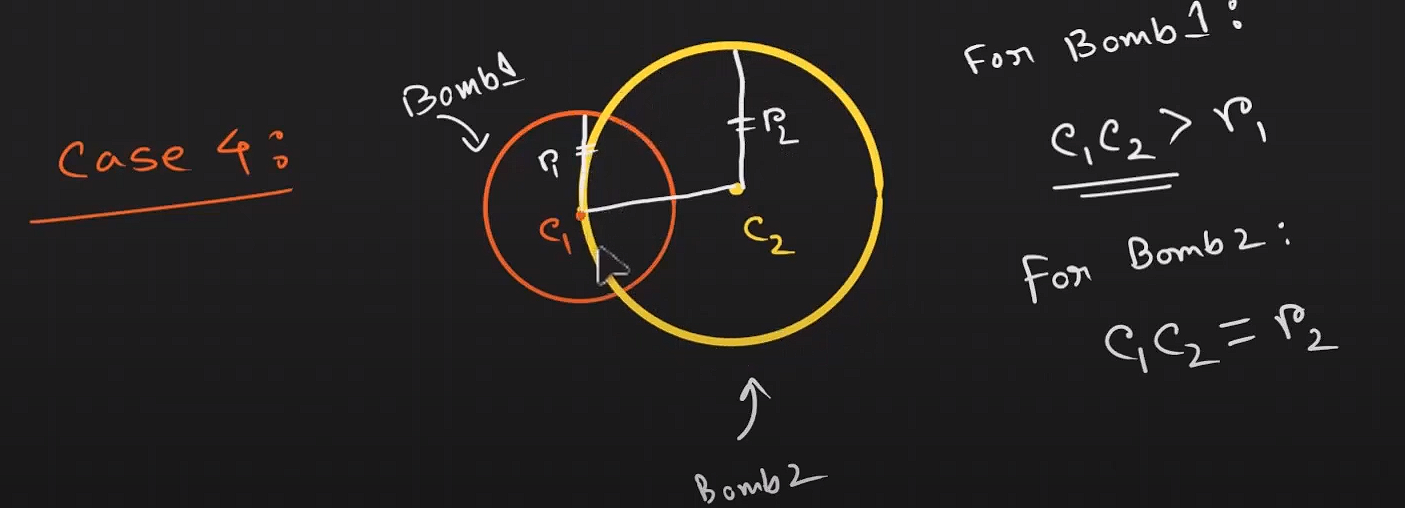 Case 4:
Bomb1
r₁
C₁
r₂
C₂
Bomb2
For Bomb1:
C₁C₂ > r₁
For Bomb2:
C₁C₂ = r₂